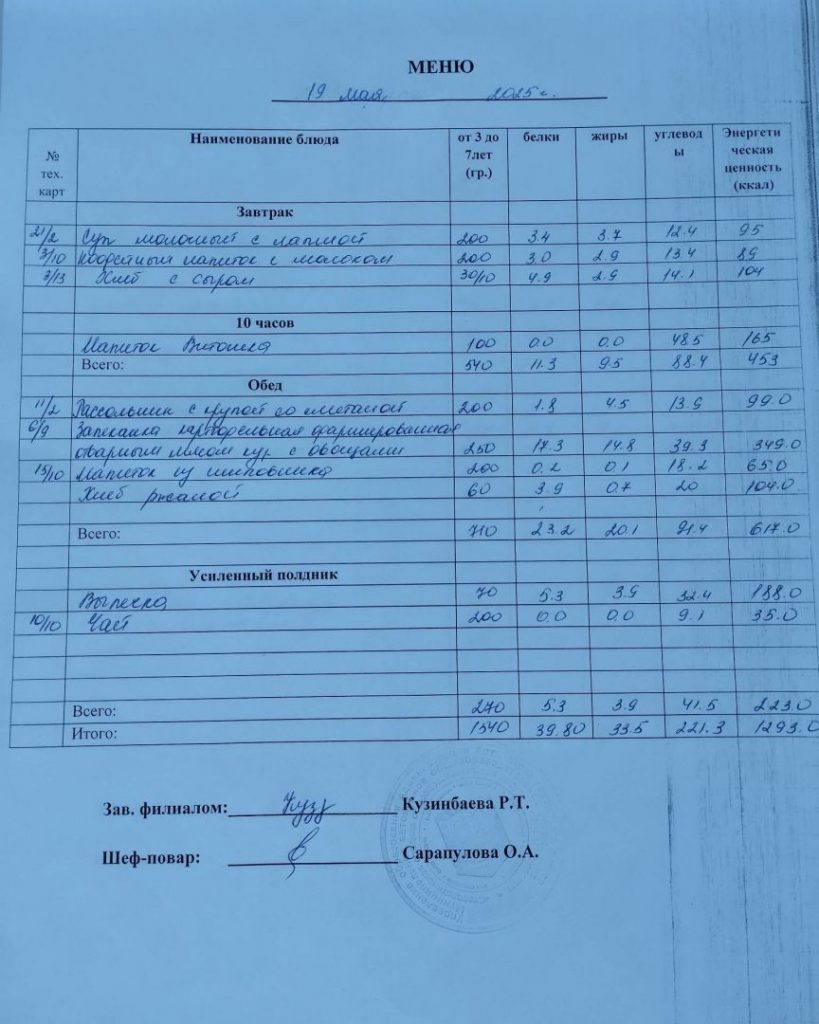 МЕНЮ
19 мая 2025 г.
№ тех. карт Наименование блюда от 3 до 7лет (гр.) белки жиры углеводы Энергетическая ценность (ккал)
Завтрак
21/2 Суп молочный с лапшой 200 3.4 3.7 12.4 95
3/10 Кофейный напиток с молоком 200 3.0 2.9 13.4 89
2/13 Хлеб с сыром 30/10 4.9 2.9 14.1 104
10 часов
Напиток Витошка 100 0.0 0.0 48.5 165
Всего: 540 11.3 9.5 88.4 453
Обед
11/2 Рассольник с крупой со сметаной 200 1.8 4.5 13.9 99.0
6/9 Запеканка картофельная фаршированная
отварным мясом кур с овощами 250 17.3 14.8 39.3 349.0
15/10 Напиток из шиповника 200 0.2 0.1 18.2 65.0
Хлеб ржаной 60 3.9 0.7 20 104.0
Всего: 710 23.2 20.1 91.4 617.0
Усиленный полдник
Выпечка 70 5.3 3.9 32.4 188.0
10/10 Чай 200 0.0 0.0 9.1 35.0
Всего: 270 5.3 3.9 41.5 223.0
Итого: 1540 39.80 33.5 221.3 1293.0
Зав. филиалом: Кузинбаева Р.Т.
Шеф-повар: Сарапулова О.А.